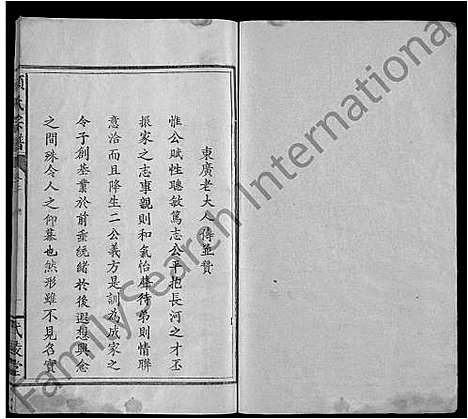 東廣老大人傳並贊
惟公賦性聰敏篤志公平抱長河之才丕
振家之志事親則和氣怡聲待弟則情聯
意洽而且降生二公義方是訓為成家之
令于創基業於前垂統緒於後遐想興念
之間殊令人之仰慕也然形雖不見名實
氏宗譜
FamilySearch International